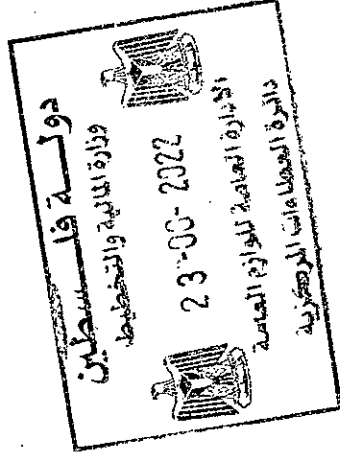 دولـــة فلـــسطين
وزارة المالية والتخطيط
23-00-2022
الادارة العامة للوازم العامة
دائرة العطاءات المركزية